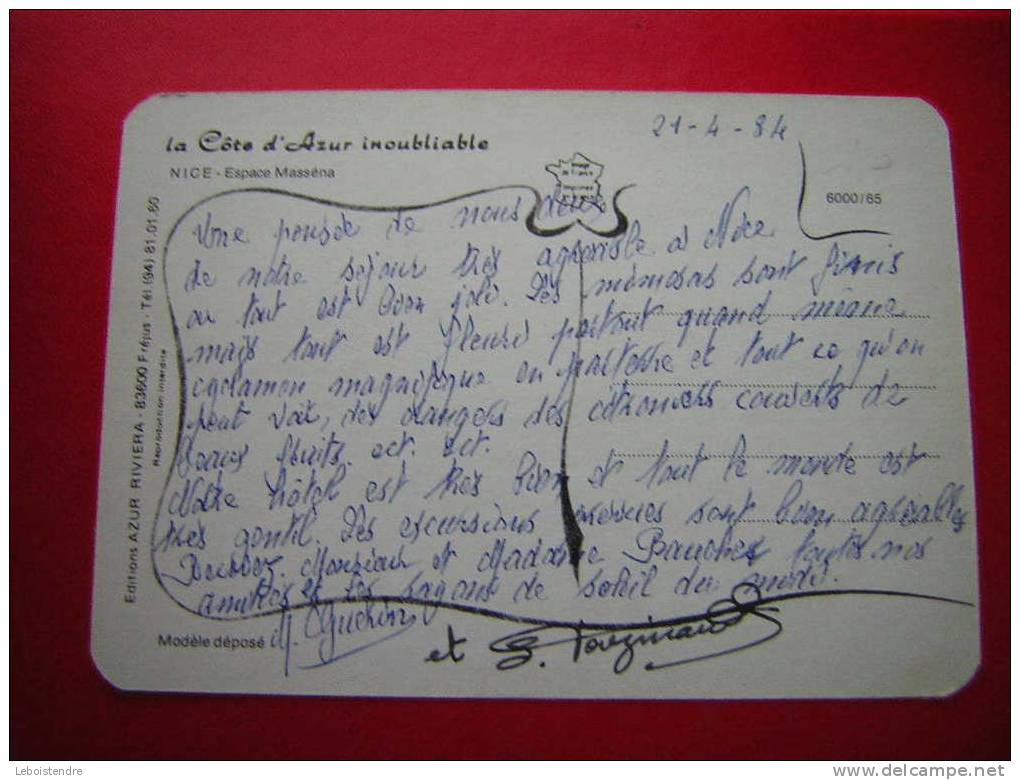 21-4-84
la Côte d'Azur inoubliable
NICE - Espace Masséna
6000/65
Une pensée de nous deux
de notre séjour très agréable à Nice
ou tout est bien joli. Les mimosas sont finis
mais tout est fleuri partout quand même
cyclamen magnifique en parterre et tout ce qu'on
peut voir, des orangers des citronniers couverts de
beaux fruits. ect. ect.
Notre hôtel est très bien et tout le monde est
très gentil. Les excursions sont bien agréables
Monsieur et Madame toutes nos
amitiés et les rayons de soleil du midi.
M. Guérin
et S.
Editions AZUR RIVIERA - 83600 Fréjus - Tél (94) 81.01.60
Reproduction interdite
Modèle déposé
Leboistendre
www.delcampe.net